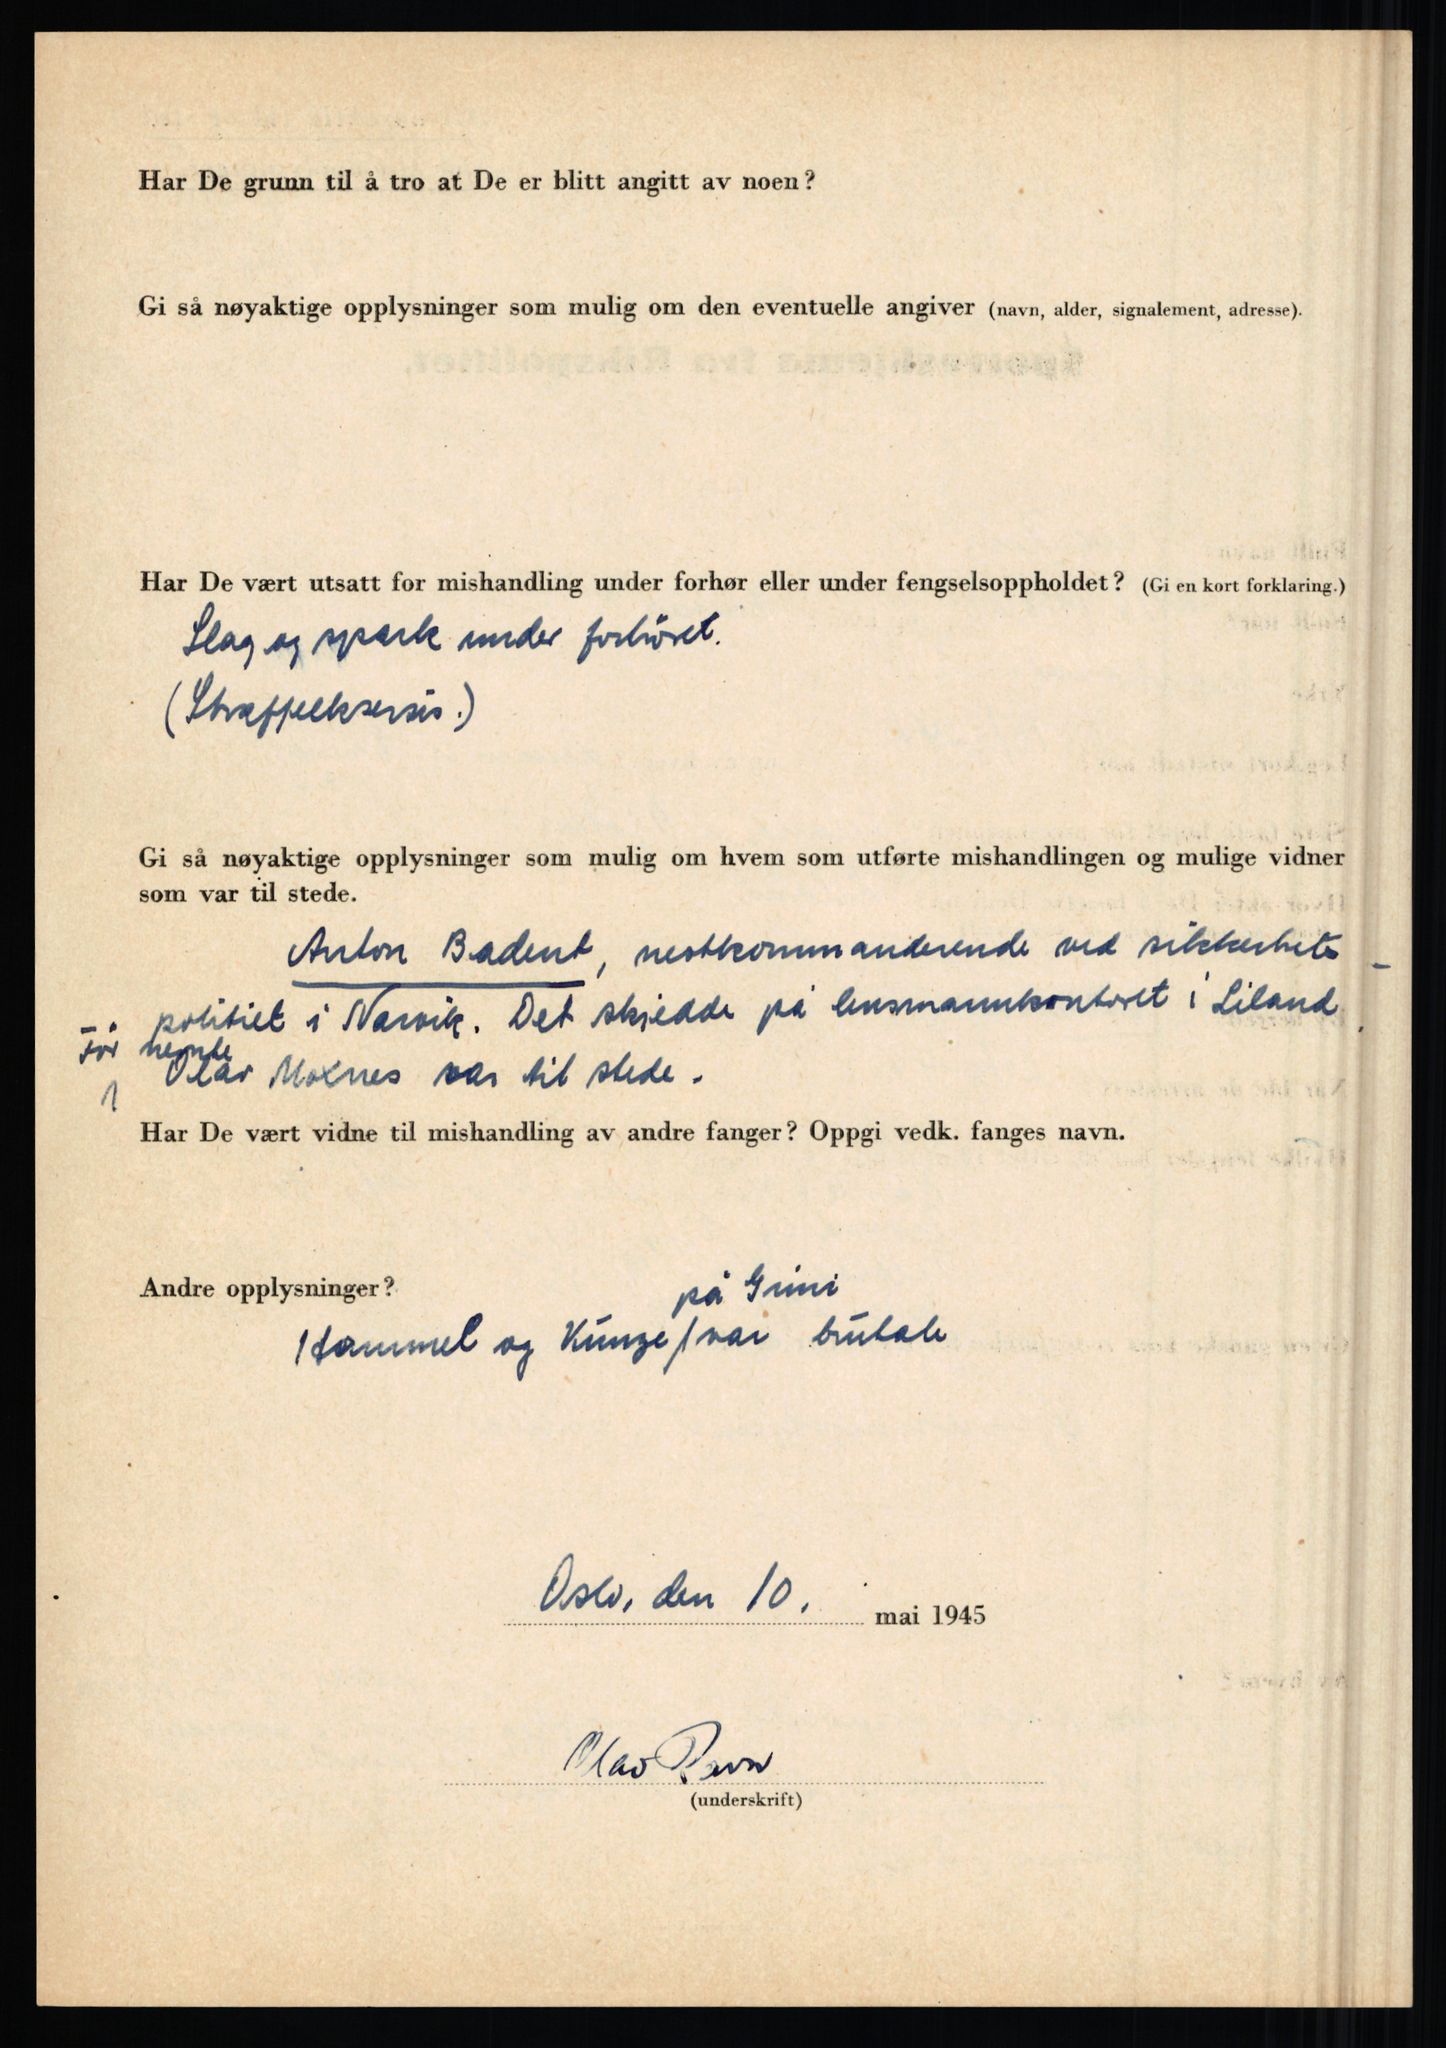 Har De grunn til å tro at De er blitt angitt av noen?
Gi så nøyaktige opplysninger som mulig om den eventuelle angiver (navn, alder, signalement, adresse).
Har De vært utsatt for mishandling under forhør eller under fengselsoppholdet? (Gi en kort forklaring.)
Slag og spark under forhöret.
(Straffeeksersis.)
Gi så nøyaktige opplysninger som mulig om hvem som utførte mishandlingen og mulige vidner
som var til stede.
Anton Badent, nestkommanderende ved sikkerhets-
politiet i Narvik. Det skjedde på lensmannkontoret i Liland.
För nemnte
Olav Moxnes var til stede.
Har De vært vidne til mishandling av andre fanger? Oppgi vedk. fanges navn.
Andre opplysninger?
på Grini
Hammel og Kunze / var brutale
Oslo, den 10. mai 1945
Olav Ravn
(underskrift)